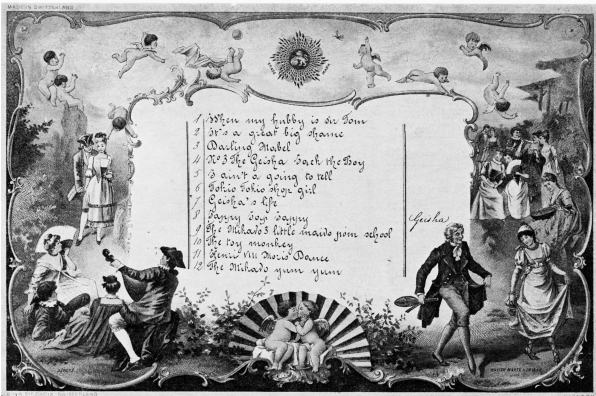 MADE IN SWITZERLAND
1 When my hubby is Sir Tom
2 It's a great big shame
3 Darling Mabel
4 No 3 The Geisha Jack the Boy
5 I ain't a going to tell
6 Tokio Tokio Shop girl
7 Geisha's life
8 Happy Jap Happy
9 The Mikado 3 little maids from school
Geisha
10 The toy monkey
11 Henri VIII Moris Dance
12 The Mikado yum yum